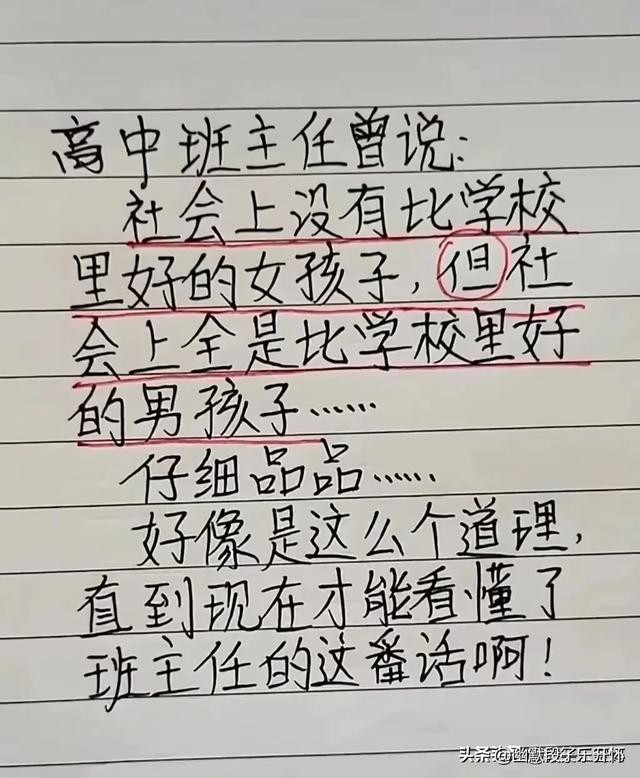 高中班主任曾说:
社会上没有比学校
里好的女孩子,但社
会上全是比学校里好
的男孩子……
仔细品品……
好像是这么个道理,
直到现在才能看懂了
班主任的这番话啊!
头条@幽默段子乐开怀